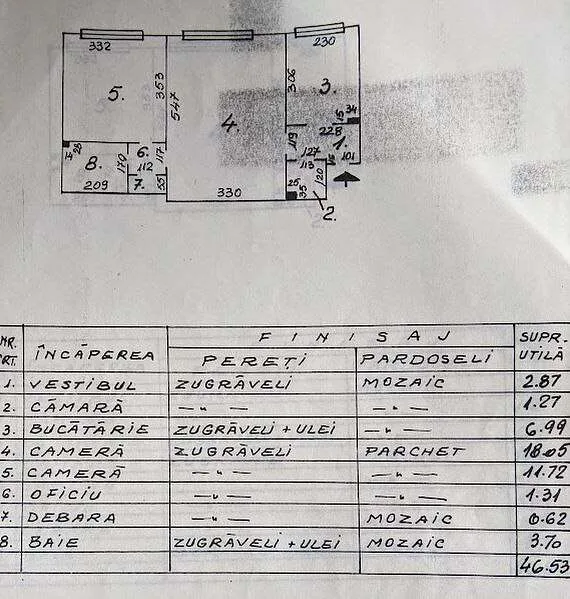 332
230
5.
353
547
306
3.
4.
15
34
228
119
1.
127
101
113
120
25
35
2.
14
28
6.
117
8.
170
112
7.
55
209
330
NR. CRT. ÎNCĂPEREA FINISAJ SUPR. UTILĂ
PEREȚI PARDOSELI
1. VESTIBUL ZUGRĂVELI MOZAIC 2.87
2. CĂMARĂ — " — — " — 1.27
3. BUCĂTĂRIE ZUGRĂVELI + ULEI — " — 6.99
4. CAMERĂ ZUGRĂVELI PARCHET 18.05
5. CAMERĂ — " — — " — 11.72
6. OFICIU — " — — " — 1.31
7. DEBARA — " — MOZAIC 0.62
8. BAIE ZUGRĂVELI + ULEI MOZAIC 3.70
46.53